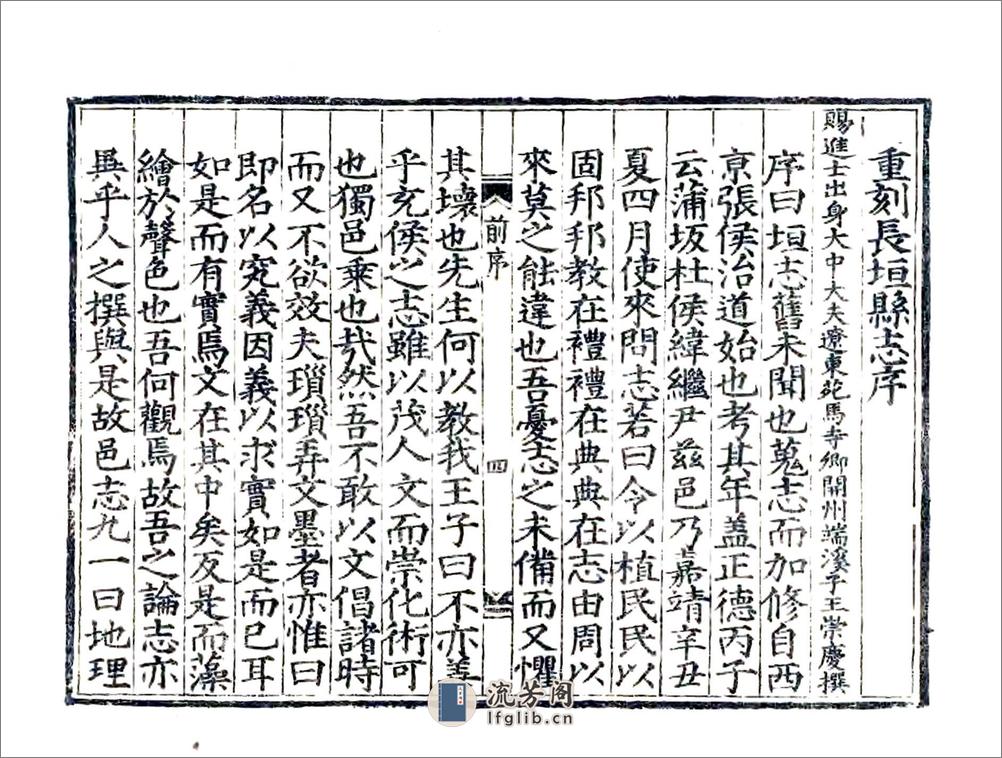 重刻長垣縣志序
賜進士出身大中大夫遼東苑馬寺卿開州端溪子王崇慶撰
序曰垣志舊未聞也蒐志而加修自西
京張侯治道始也考其年盖正德丙子
云蒲坂杜侯緯繼尹兹邑乃嘉靖辛丑
夏四月使來問志若曰令以植民民以
固邦邦教在禮禮在典典在志由周以
來莫之能違也吾憂志之未備而又懼
前序
四
其壞也先生何以教我王子曰不亦善
乎充侯之志雖以茂人文而崇化術可
也獨邑乗也㢤然吾不敢以文倡諸時
而又不欲效夫瑣瑣弄文墨者亦惟曰
即名以究義因義以求實如是而已耳
如是而有實焉文在其中矣反是而藻
繪於聲色也吾何觀焉故吾之論志亦
異乎人之撰與是故邑志九一曰地理
流芳阁
lfglib.cn